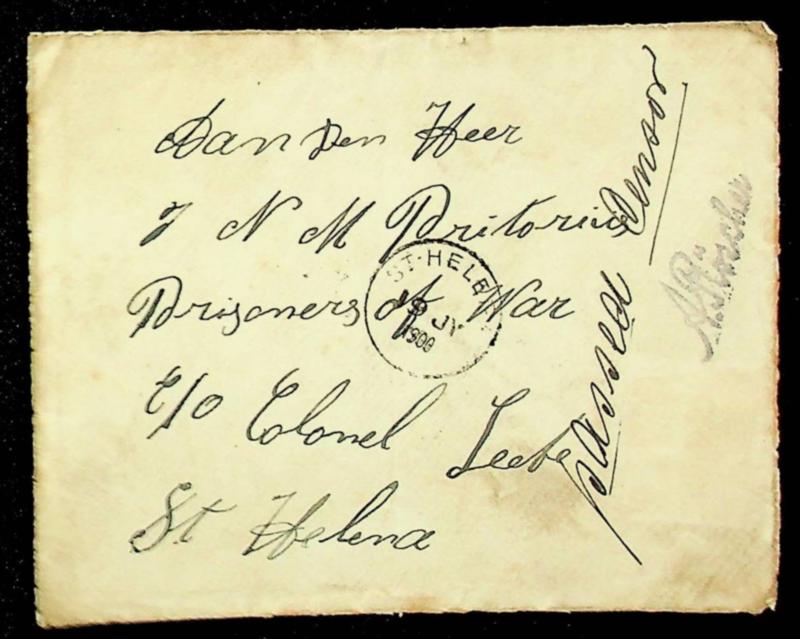 Aan Den Heer
J N M Pritorius
Prisoners of War
C/o Colonel Leefe
St Helena
ST. HELENA
19 JY
1900
passed Censor